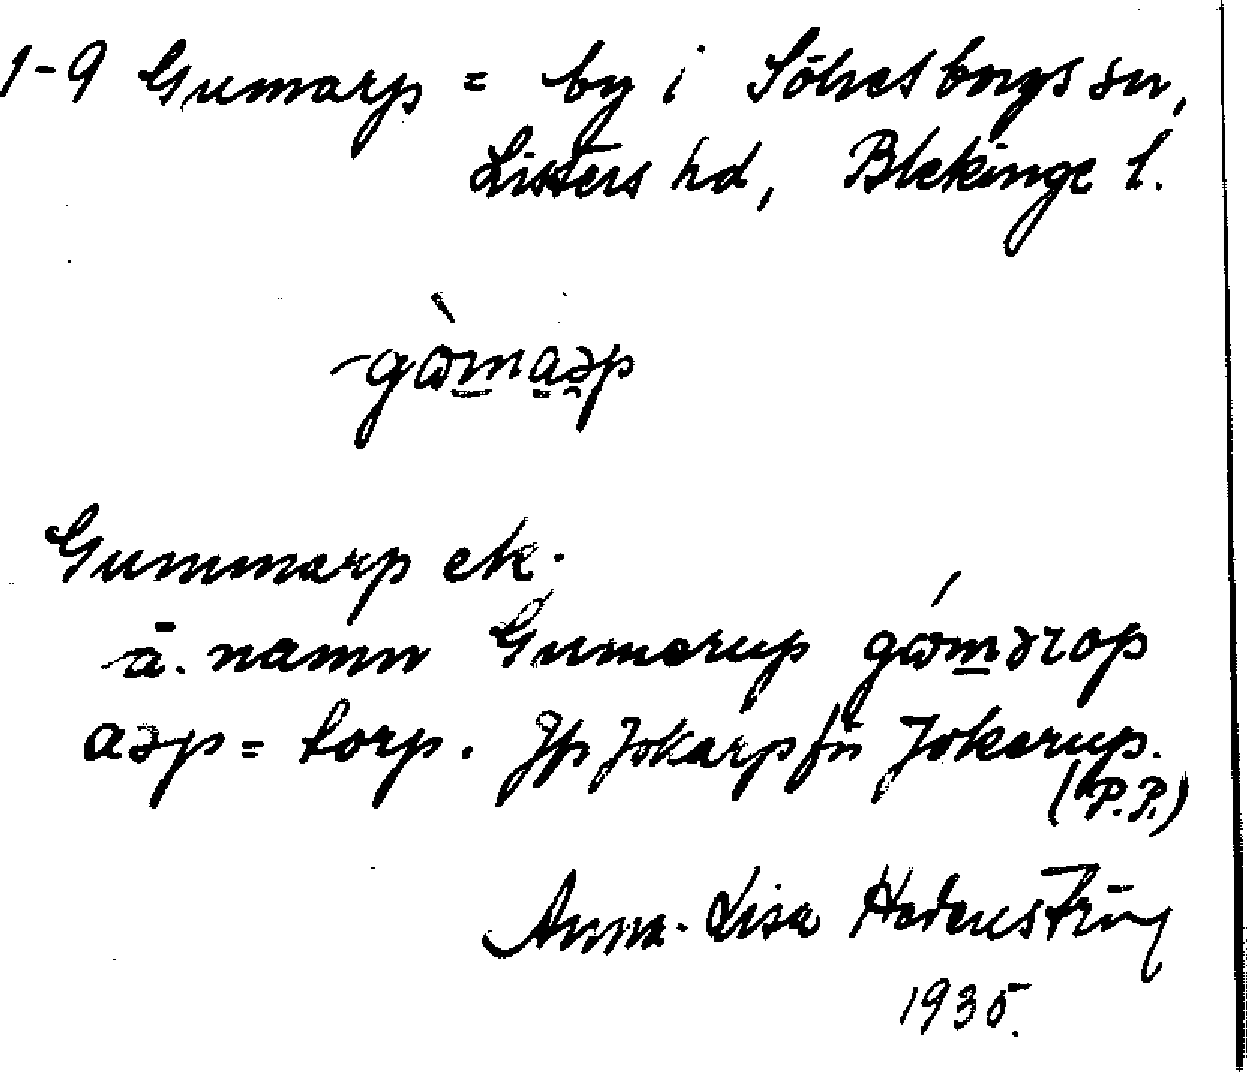 1-9 Gumarp = by i Sölvesborgs sn,
Listers hd, Blekinge l.
gòmaəp
Gummarp ek.
ä. namn Gumarup gómərop
aəp = torp. Jfr Jokarp fn Jokarup.
(P.P.)
Anna-Lisa Hedenström
1935.